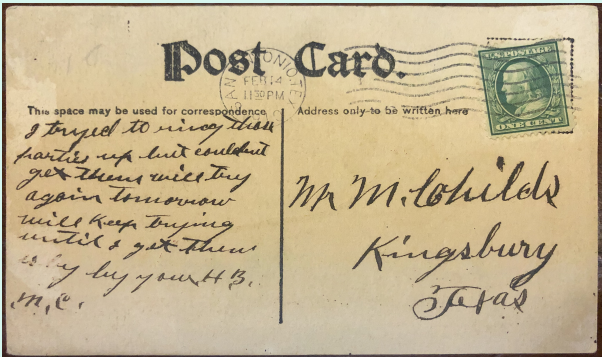 Post Card.
SAN ANTONIO, TEX.
FEB 14
11 30 PM
U.S. POSTAGE
ONE CENT
This space may be used for correspondence
Address only to be written here
I tryed to ring those
parties up but couldent
get them will try
again tomorrow
will keep trying
until I get them
by by your H B.
M.C.
Mr M. Childs
Kingsbury
Texas